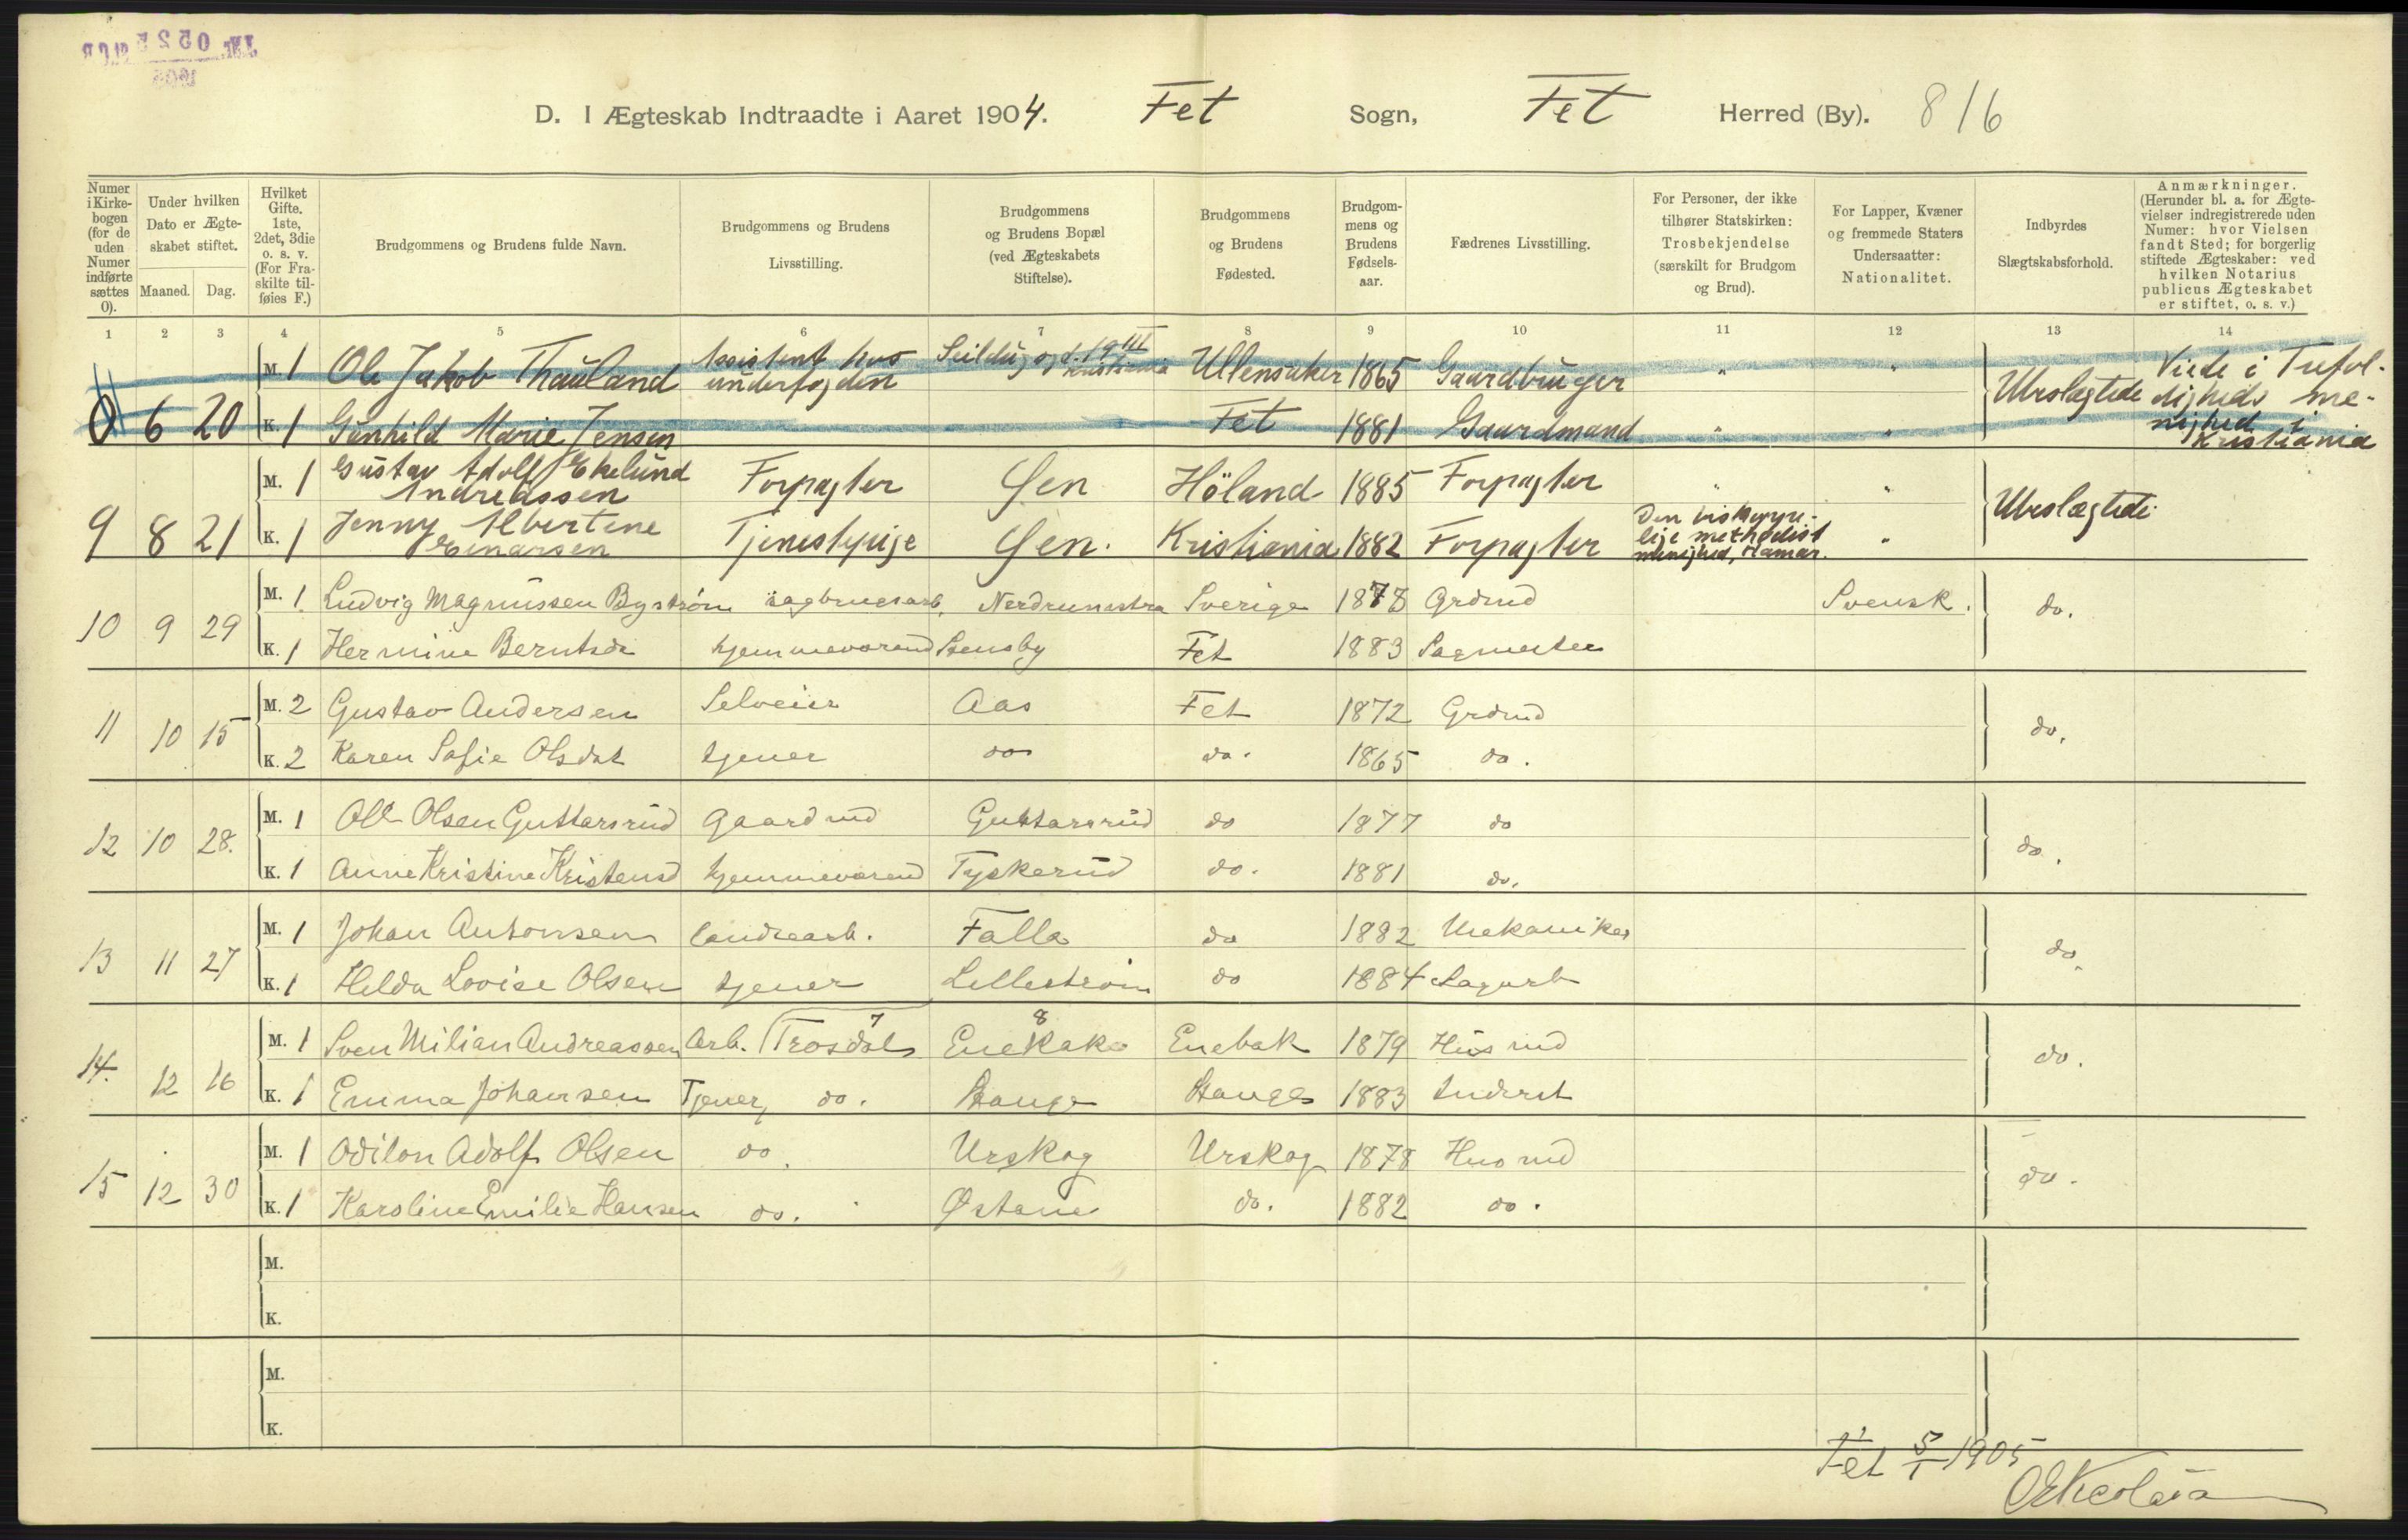 D. I Ægteskab Indtraadte i Aaret 1904. Fet Sogn, Fet Herred (By). 816
Numer i Kirkebogen (for de uden Numer indførte sættes 0).
Under hvilken Dato er Ægteskabet stiftet.
Maaned. Dag.
Hvilket Gifte. 1ste, 2det, 3die o. s. v. (For Fraskilte tilføies F.)
Brudgommens og Brudens fulde Navn.
Brudgommens og Brudens Livsstilling.
Brudgommens og Brudens Bopæl (ved Ægteskabets Stiftelse).
Brudgommens og Brudens Fødested.
Brudgommens og Brudens Fødselsaar.
Fædrenes Livsstilling.
For Personer, der ikke tilhører Statskirken: Trosbekjendelse (særskilt for Brudgom og Brud).
For Lapper, Kvæner og fremmede Staters Undersaatter: Nationalitet.
Indbyrdes Slægtskabsforhold.
Anmærkninger. (Herunder bl. a. for Ægtevielser indregistrerede uden Numer: hvor Vielsen fandt Sted; for borgerlig stiftede Ægteskaber: ved hvilken Notarius publicus Ægteskabet er stiftet, o. s. v.)
1 2 3 4 5 6 7 8 9 10 11 12 13 14
M. 1 Ole Jakob Thauland Assistent hos underfogden Seildugsgd. 19 III Kristiania Ullensaker 1865 Gaardbruger " " Ubeslægtede Viede i Trefoldigheds menighed i Kristiania
0 6 20 K. 1 Gunhild Marie Jensen Fet 1881 Gaardmand " "
M. 1 Gustav Adolf Ekelund Andreassen Forpagter Gen Höland 1885 Forpagter " " Ubeslægtede
9 8 21 K. 1 Jenny Albertine Einarsen Tjenestepige Gen. Kristiania 1882 Forpagter Den biskoppelige methodist menighed, Hamar. "
M. 1 Ludvig Magnussen Byström sagbrugsarb. Nerdrumstra Sverige 1878 Grdmd Svensk. do.
10 9 29 K. 1 Hermine Berntsdr hjemmeværend Svensby Fet 1883 Sagmester
M. 2 Gustav Andersen Selveier Aas Fet 1872 Grdmd do.
11 10 15 K. 2 Karen Sofie Olsdat tjener do do. 1865 do.
M. 1 Ole Olsen Guttersrud Gaardmd Guttersrud do 1877 do do.
12 10 28. K. 1 Anne Kristine Kristensd hjemmeværend Tyskerud do. 1881 do.
M. 1 Johan Antonsen landearb. Falla do 1882 Mekaniker do.
13 11 27 K. 1 Helda Lovise Olsen tjener Lilleström do 1884 Sagarb
M. 1 Sven Milian Andreassen Arb. Trosdal 7 Enebak 8 Enebak 1879 Husmd do.
14. 12 16 K. 1 Emma Johansen Tjener, do. Stange Stange 1883 Inderst
M. 1 Odilon Adolf Olsen do. Urskog Urskog 1878 Husmd do.
15 12 30 K. 1 Karoline Emilie Hansen do. Østane do. 1882 do.
M.
K.
M.
K.
Fet 5/1 1905